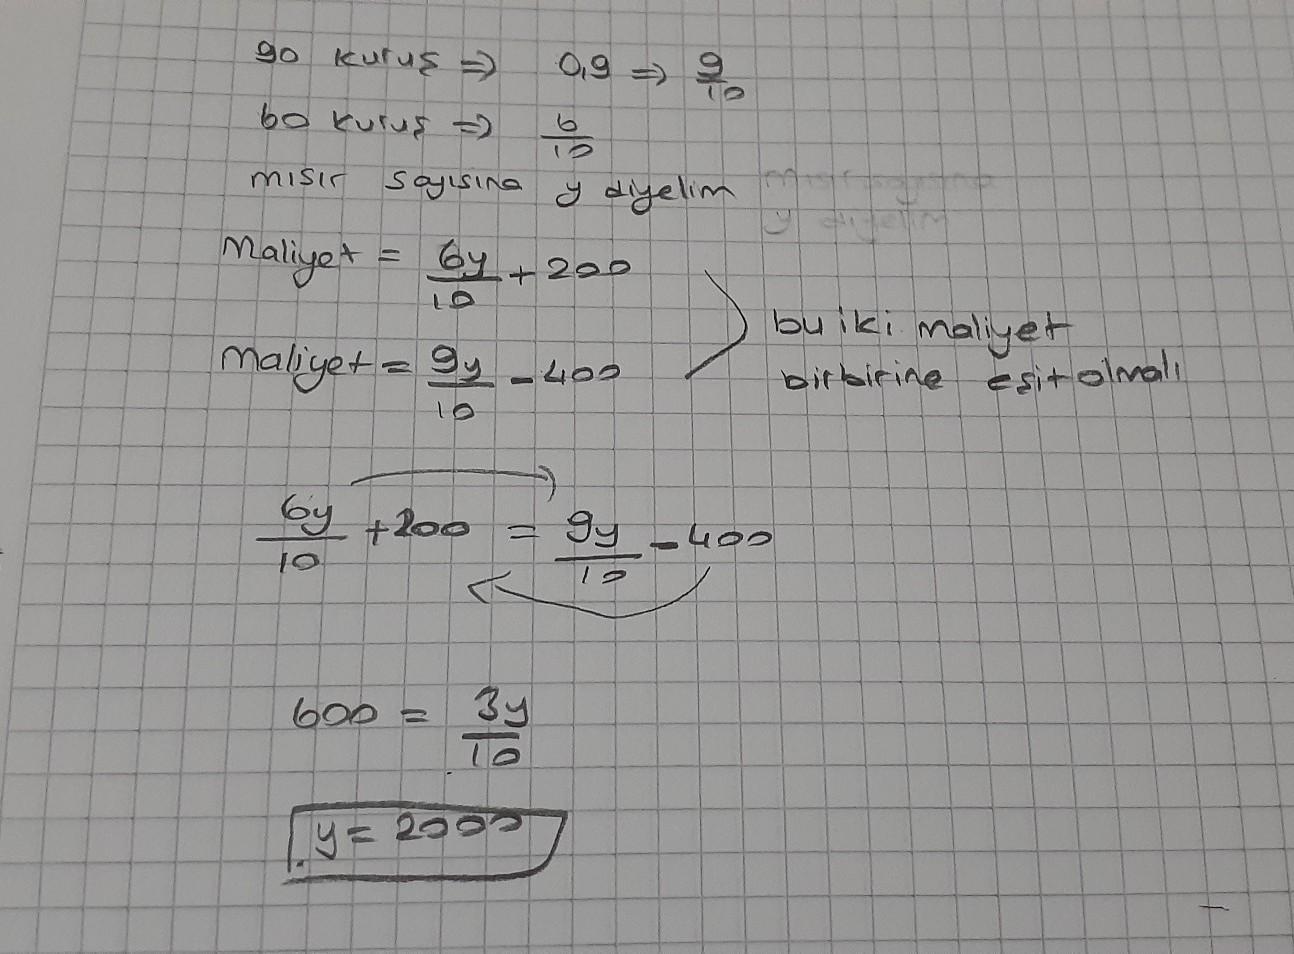 90 kuruş ⇒ 0,9 ⇒ 9/10
60 kuruş ⇒ 6/10
mısır sayısına y diyelim
Mısır sayısına
y diyelim
Maliyet = 6y/10 + 200
Maliyet = 9y/10 - 400
bu iki maliyet
birbirine eşit olmalı
6y/10 + 200 = 9y/10 - 400
600 = 3y/10
y = 2000